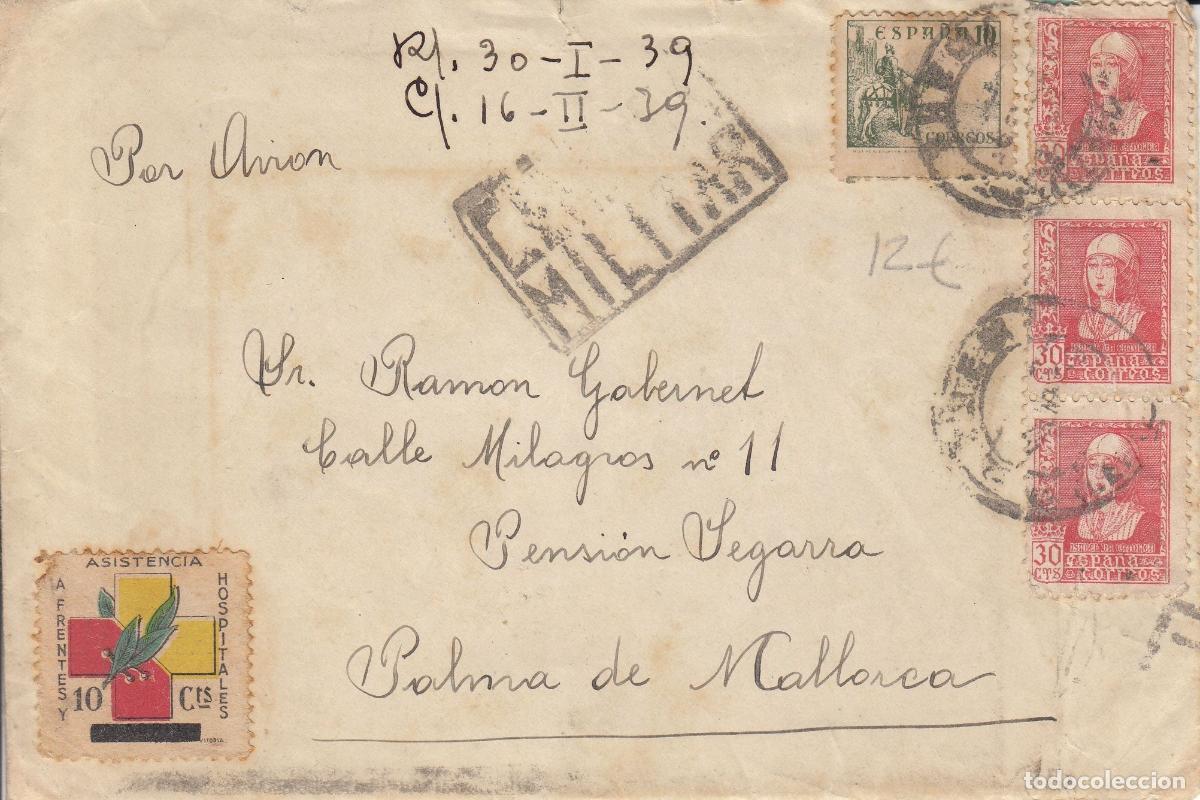 R/. 30-I-39
C/. 16-II-39.
Por Avion
ESPAÑA 10
CORREOS
MILITAR
12€
Sr. Ramon Gabernet
Calle Milagros nº 11
Pensión Segarra
Palma de Mallorca
30
españa
correos
30
CTS
ISABEL LA CATOLICA
españa
correos
30
CTS
ISABEL LA CATOLICA
españa
correos
ASISTENCIA
A FRENTES Y
HOSPITALES
10 Cts
VITORIA
todocoleccion